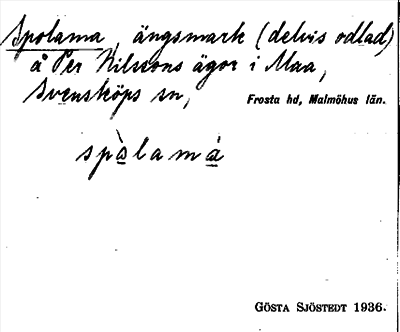 Spolama, ängsmark (delvis odlad)
å Per Nilssons ägor i Maa,
Svensköps sn, Frosta hd, Malmöhus län.
spòlamá
GÖSTA SJÖSTEDT 1936.